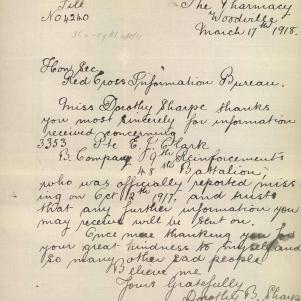 File
The Pharmacy
No 4240
Woodville
March 17th 1918.
Hon Sec
Red Cross Information Bureau.
Miss Dorothy Sharpe thanks
you most sincerely for information
received concerning
3353 Pte E. J. Clark
B. Company 9th Reinforcements
48th Battalion,
who was officially reported miss
ing on Oct 12th 1917, and trusts
that any further information you
may receive will be sent on.
Once more thanking you for
your great kindness to myself and
so many other sad people
Believe me
Yours Gratefully
Dorothy B. Sharpe